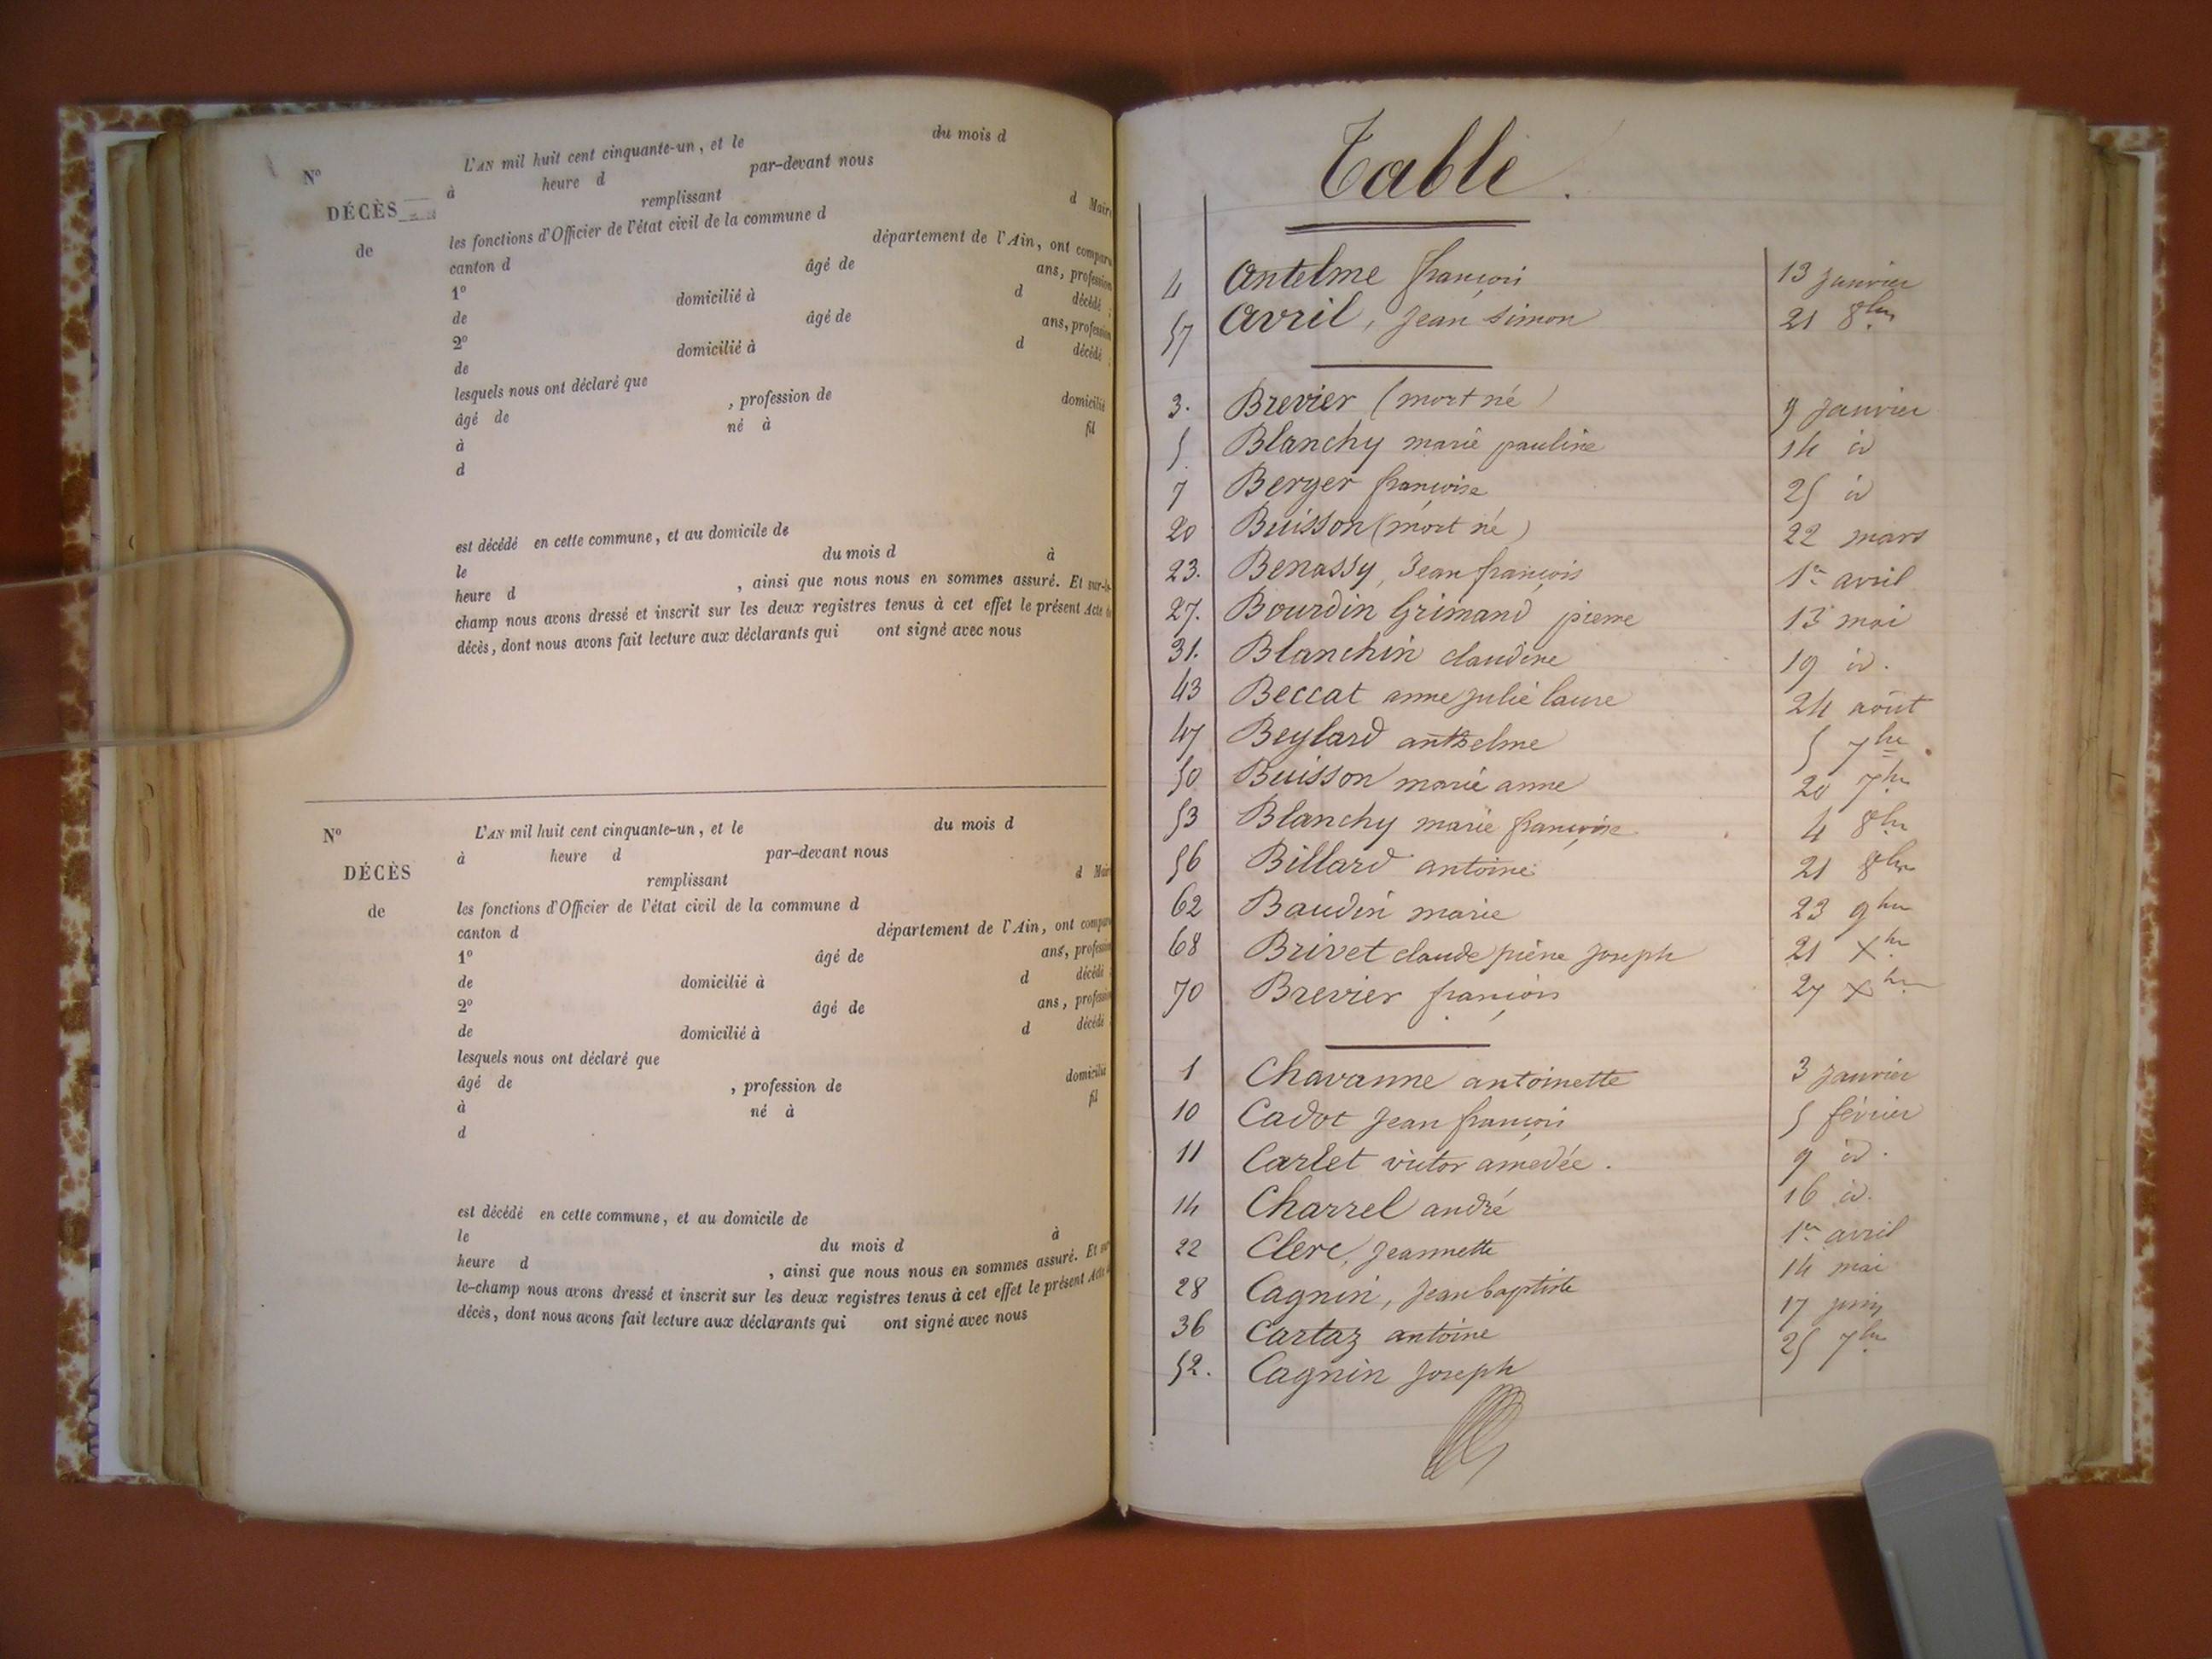 N° L'AN mil huit cent cinquante-un, et le du mois d
à heure d par-devant nous
DÉCÈS remplissant d Maire
de les fonctions d'Officier de l'état civil de la commune d
canton d département de l'Ain, ont comparu
1° âgé de ans, profession
de domicilié à d décédé ;
2° âgé de ans, profession
de domicilié à d décédé ;
lesquels nous ont déclaré que
âgé de , profession de domicilié
à né à fil
d
est décédé en cette commune, et au domicile de
le du mois d à
heure d , ainsi que nous nous en sommes assuré. Et sur-le-
champ nous avons dressé et inscrit sur les deux registres tenus à cet effet le présent Acte de
décès, dont nous avons fait lecture aux déclarants qui ont signé avec nous
N° L'AN mil huit cent cinquante-un, et le du mois d
à heure d par-devant nous
DÉCÈS remplissant d Mair
de les fonctions d'Officier de l'état civil de la commune d
canton d département de l'Ain, ont comparu
1° âgé de ans, profession
de domicilié à d décédé ;
2° âgé de ans, profession
de domicilié à d décédé
lesquels nous ont déclaré que
âgé de , profession de domicilié
à né à fil
d
est décédé en cette commune, et au domicile de
le du mois d à
heure d , ainsi que nous nous en sommes assuré. Et sur
le-champ nous avons dressé et inscrit sur les deux registres tenus à cet effet le présent Acte d
décès, dont nous avons fait lecture aux déclarants qui ont signé avec nous
Table.
4 Antelme françois 13 Janvier
57 Avril, Jean Simon 21 8bre
3. Brevier (mort né) 9 Janvier
5. Blanchy marie pauline 14 id
7 Berger françoise 25 id
20 Buisson (mort né) 22 mars
23. Benassy, Jean françois 1er avril
27. Bourdin Grimand pierre 13 mai
31. Blanchin claudine 19 id.
43 Beccat anne Julie laure 24 août
47 Beylard anthelme 5 7bre
50 Buisson marie anne 20 7bre
53 Blanchy marie françoise 4 8bre
56 Billard antoine 21 8bre
62 Baudin marie 23 9bre
68 Brivet claude pierre Joseph 21 Xbre
70 Brevier françois 27 Xbre
1 Chavanne antoinette 3 Janvier
10 Cadot Jean françois 5 février
11 Carlet victor amedée. 9 id.
14 Charrel andré 16 id.
22 Clerc, Jeannette 1er avril
28 Cagnin, Jean baptiste 14 mai
36 Cartaz antoine 17 juin
52. Cagnin Joseph 25 7bre